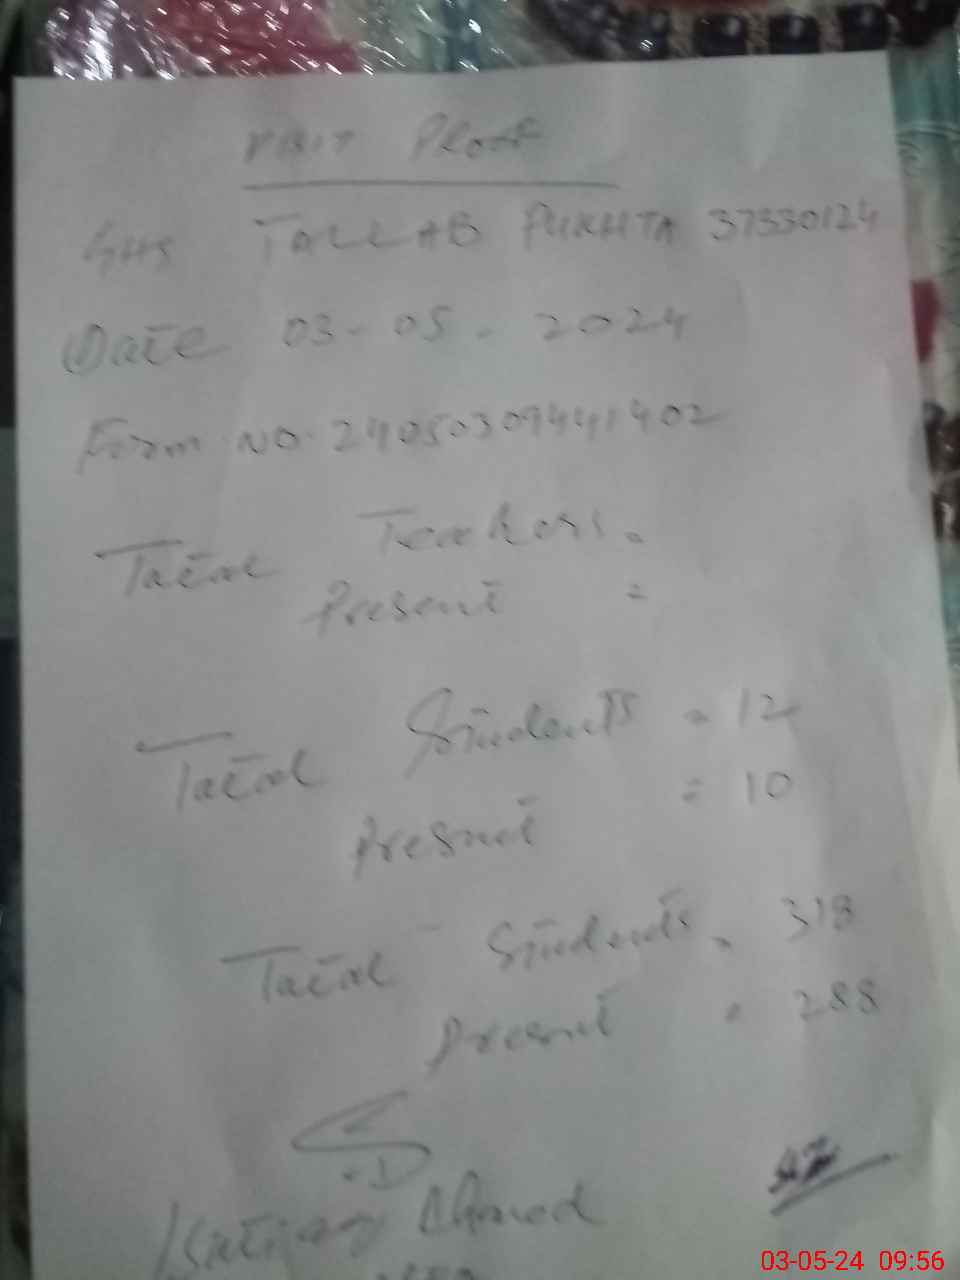 VISIT PROOF
GHS TALLAB PUKHTA 37330124
Date 03-05-2024
Form NO. 24050309441402
Total Teachers =
Present =
Total Students = 12
Present = 10
Total Students = 318
Present = 288
Ahmed
03-05-24 09:56